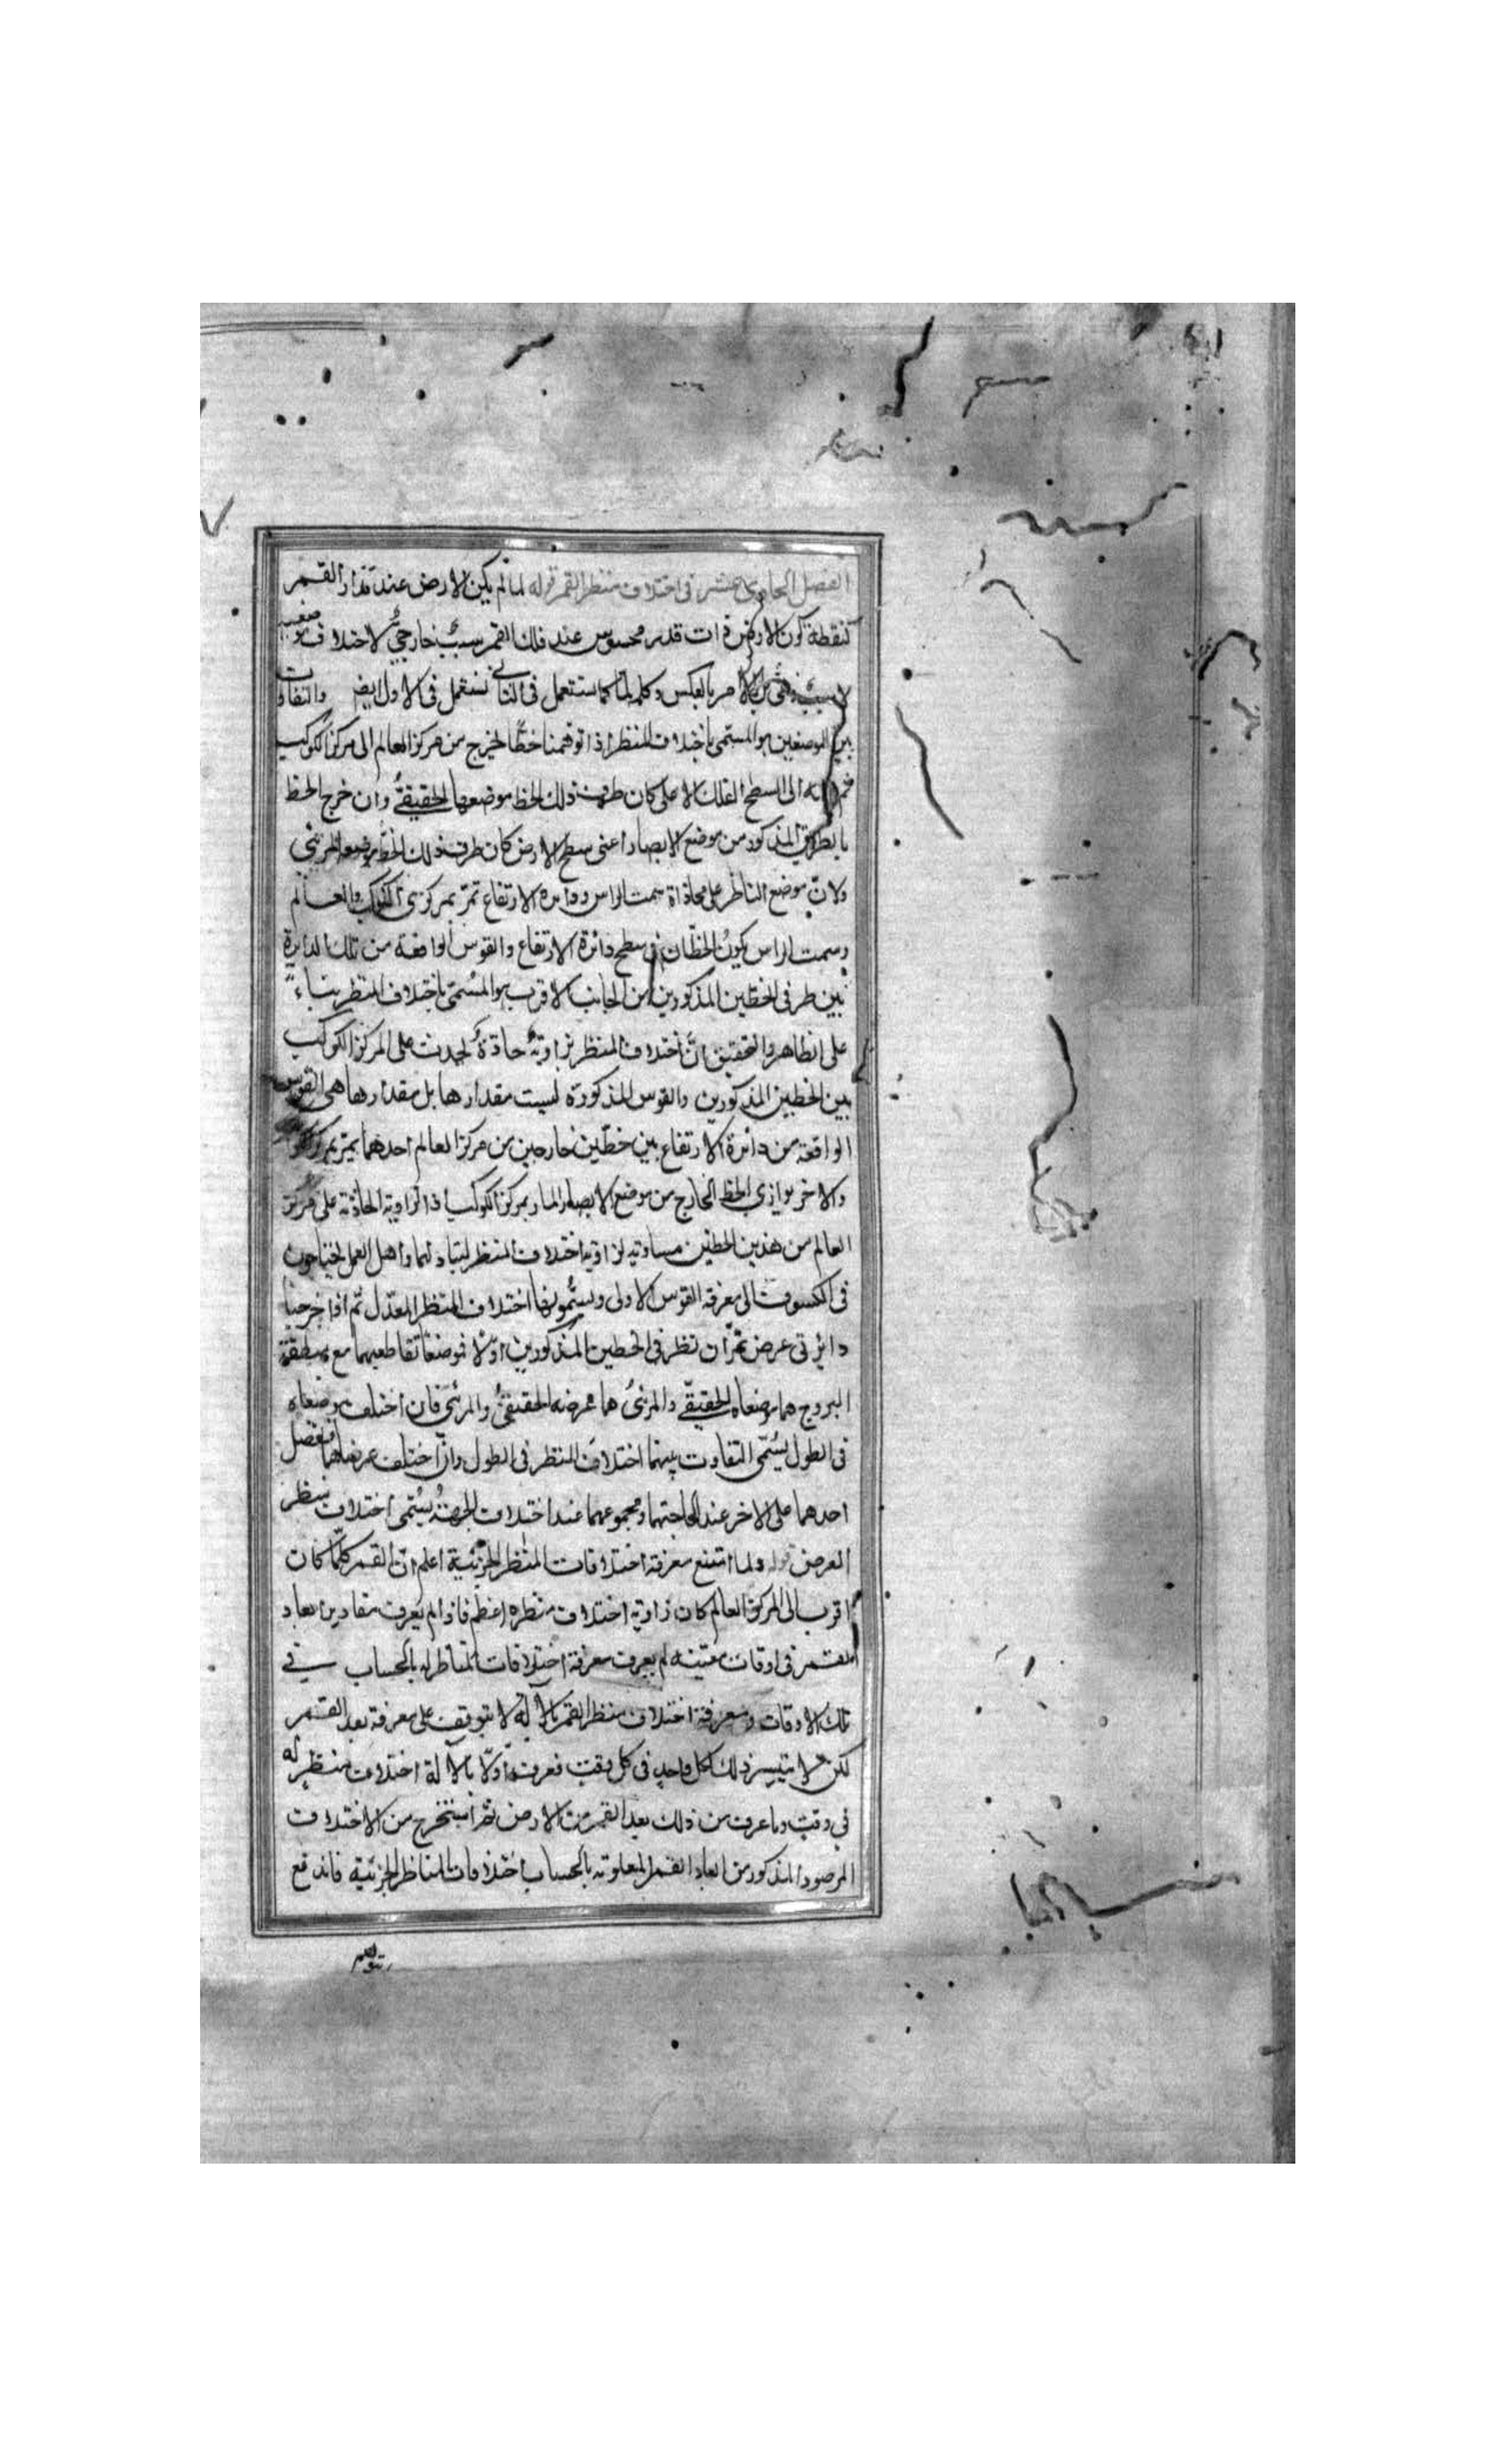 الفصل الحادى عشر فى اختلاف منظر القمر قوله لما لم يكن الارض عند مدار القمر
كنقطة كون الارض ذات قدر محسوس عند فلك القمر سبب خارجى لاختلاف موضعيه
لا سبب ذهنى بل الامر بالعكس وكلمة لما كما تستعمل فى الثانى تستعمل فى الاول ايضا والتفاوت
بين الموضعين هو المسمى باختلاف المنظر اذا توهمنا خطا يخرج من مركز العالم الى مركز الكوكب
الى السطح الفلك الاعلى كان طرف ذلك الخط موضعها الحقيقى وان خرج الخط
بالطريق المذكور من موضع الابصار اعنى سطح الارض كان طرف ذلك الخط موضعه المرئى
ولان موضع الناظر على محاذاة سمت الراس ودائرة الارتفاع تمر بمركزى الكوكب والعالم
وسمت الراس يكون الخطان فى سطح دائرة الارتفاع والقوس الواقعة من تلك الدايرة
بين طرفى الخطين المذكورين من الجانب الاقرب هو المسمى باختلاف المنظر بناء
على الظاهر والتحقيق ان اختلاف المنظر زاوية حادة يحدث على المركز الكوكب
بين الخطين المذكورين والقوس المذكورة ليست مقدارها بل مقدارها هى القوس
الواقعة من دائرة الارتفاع بين خطين خارجين من مركز العالم احدهما يمر بمركز الكوكب
والاخر يوازى الخط الخارج من موضع الابصار المار بمركز الكوكب اذ الزاوية الحادثة على مركز
العالم من هذين الخطين مساوية لزاوية اختلاف المنظر لتبادلهما واهل العمل يحتاجون
فى الكسوف الى معرفة القوس الاولى ويسمونها اختلاف المنظر المعدل ثم اذا اخرجنا
دائرتى عرض تمران بطرفى الخطين المذكورين اولا فموضعا تقاطعيهما مع منطقة
البروج هما موضعاه الحقيقى والمرئى هما عرضه الحقيقى والمرئى فان اختلف موضعاه
فى الطول يسمى التفاوت بينهما اختلاف المنظر فى الطول وان اختلف عرضاهما ففضل
احدهما على الاخر عند الحاجتهما ومجموعهما عند اختلاف الجهة يسمى اختلاف منظر
العرض قوله ولما امتنع معرفة اختلافات المنظر الجزئية اعلم ان القمر كلما كان
اقرب الى المركز العالم كان زاوية اختلاف منظره اعظم فاذا لم يعرف مقادير ابعاد
القمر فى اوقات معينة لم يعرف معرفة اختلافات المناظر له بالحساب فى
تلك الاوقات ومعرفة اختلاف منظر القمر بالالة لا يتوقف على معرفة بعد القمر
لكن لا يتيسر ذلك لكل واحد فى كل وقت فعرف اولا بالالة اختلاف منظر له
فى وقت وما عرف من ذلك بعد القمر من الارض ثم استخرج من الاختلاف
المرصود المذكور من ابعاد القمر المعلومة بالحساب اختلافات المناظر الجزئية فاندفع